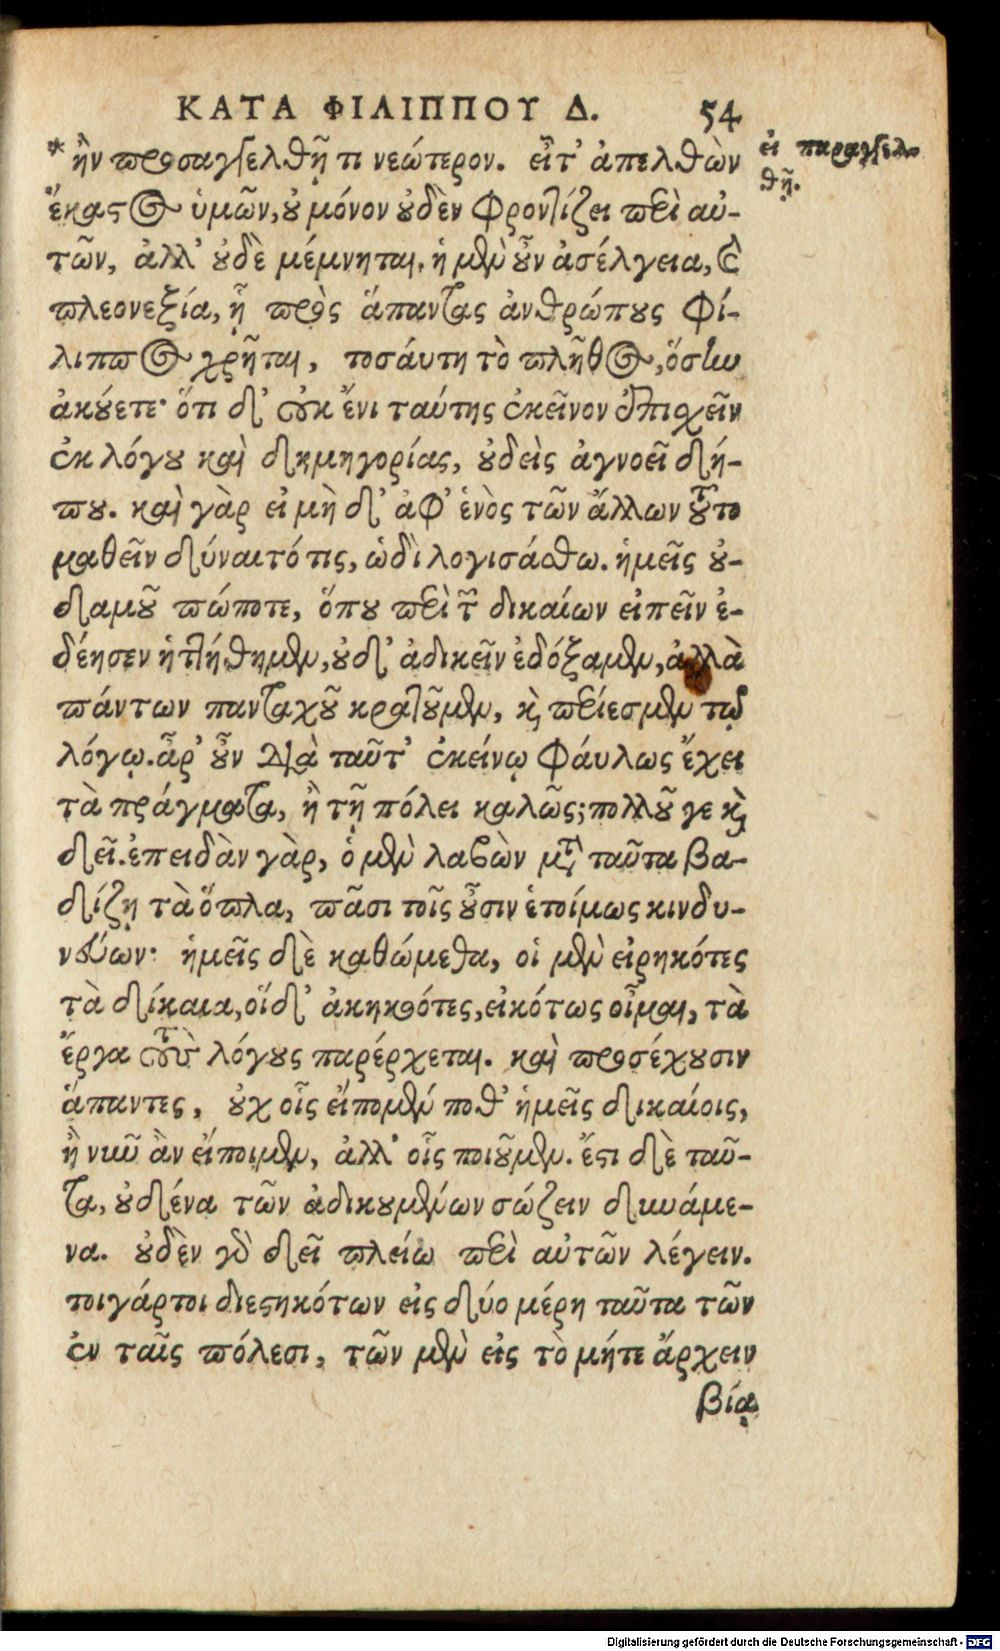 ΚΑΤΑ ΦΙΛΙΠΠΟΥ Δ. 54
* ἢν προσαγγελθῇ τι νεώτερον. εἶτ' ἀπελθὼν
ἕκαστος ὑμῶν, οὐ μόνον οὐδὲν φροντίζει περὶ αὐ-
τῶν, ἀλλ' οὐδὲ μέμνηται. ἡ μὲν οὖν ἀσέλγεια, καὶ
πλεονεξία, ᾗ πρὸς ἅπαντας ἀνθρώπους Φί-
λιππος χρῆται, τοσάυτη τὸ πλῆθος, ὅσην
ἀκούετε· ὅτι δ' οὐκ ἔνι ταύτης ἐκεῖνον ἐπισχεῖν
ἐκ λόγου καὶ δημηγορίας, οὐδεὶς ἀγνοεῖ δή-
που. καὶ γὰρ εἰ μὴ δ' ἀφ' ἑνὸς τῶν ἄλλων τοῦτο
μαθεῖν δύναιτό τις, ὡδὶ λογισάσθω. ἡμεῖς οὐ-
δαμοῦ πώποτε, ὅπου περὶ τῶν δικαίων εἰπεῖν ἐ-
δέησεν ἡττήθημεν, οὐδ' ἀδικεῖν ἐδόξαμεν, ἀλλὰ
πάντων πανταχοῦ κρατοῦμεν, καὶ περίεσμεν τῷ
λόγῳ. ἆρ' οὖν διὰ ταῦτ' ἐκείνῳ φάυλως ἔχει
τὰ πράγματα, ἢ τῇ πόλει καλῶς; πολλοῦ γε καὶ
δεῖ. ἐπειδὰν γὰρ, ὁ μὲν λαβὼν μετὰ ταῦτα βα-
δίζῃ τὰ ὅπλα, πᾶσι τοῖς οὖσιν ἑτοίμως κινδυ-
νεύων· ἡμεῖς δὲ καθώμεθα, οἱ μὲν εἰρηκότες
τὰ δίκαια, οἵδ' ἀκηκοότες, εἰκότως οἶμαι, τὰ
ἔργα τοὺς λόγους παρέρχεται. καὶ προσέχουσιν
ἅπαντες, οὐχ οἷς εἴπομέν ποθ' ἡμεῖς δικαίοις,
ἢ νῦν ἂν εἴποιμεν, ἀλλ' οἷς ποιοῦμεν. ἔστι δὲ ταῦ-
τα, οὐδένα τῶν ἀδικουμένων σώζειν δυνάμε-
να. οὐδὲν γὰρ δεῖ πλείω περὶ αὐτῶν λέγειν.
τοιγάρτοι διεστηκότων εἰς δύο μέρη ταῦτα τῶν
ἐν ταῖς πόλεσι, τῶν μὲν εἰς τὸ μήτε ἄρχειν
βίᾳ
εἰ παραγγελ-
θῇ.
Digitalisierung gefördert durch die Deutsche Forschungsgemeinschaft - DFG